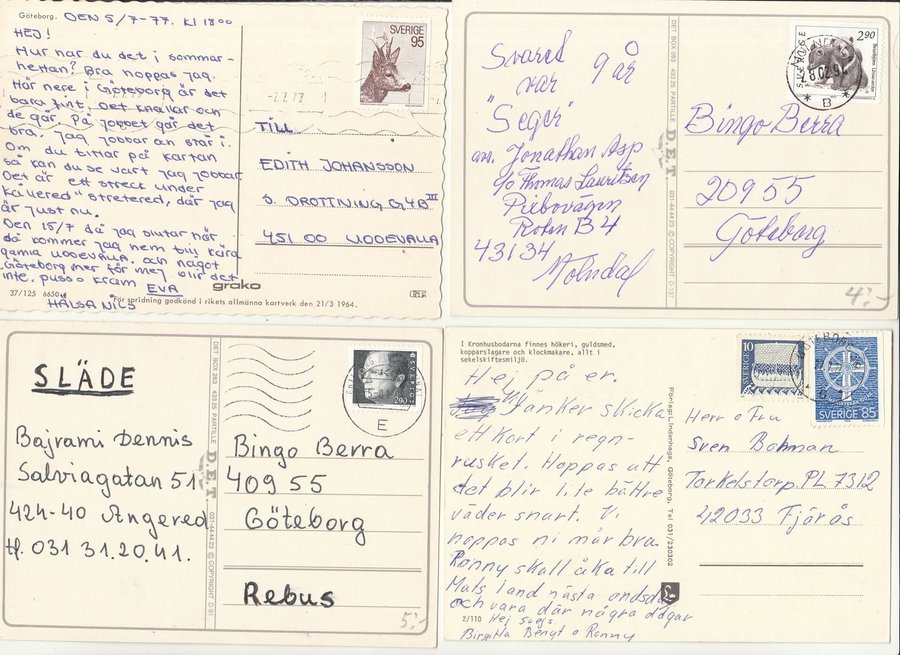 Göteborg. DEN 5/7-77. Kl 1800
HEJ!
Hur har du det i sommar-
hettan? Bra hoppas jag.
Här nere i Göteborg är det
bara fint. Det knallar och
de går. På jobbet går det
bra. Jag jobbar än står i.
Om du tittar på kartan
så kan du se vart jag jobbar
Det är ett streck under
"Kållered" stretered, där jag
är just nu.
Den 15/7 då jag slutar här
då kommer jag hem till kära
gamla UDDEVALLA. och något
Göteborg mer för mej blir det
inte. puss o kram EVA
HÄLSA NILS
37/125 6650
grako
För spridning godkänd i rikets allmänna kartverk den 21/3 1964.
SVERIGE
95
TILL
EDITH JOHANSSON
S. DROTTNING G4B III
451 00 UDDEVALLA
Svaret
var 9 år
"Seger"
avs. Jonathan Asp
c/o Thomas Lauritsen
Pilbovägen
Roten B4
43134
Mölndal
DET BOX 263 433 25 PARTILLE D.E.T. 031-44 44 23 © COPYRIGHT D-131
SVERIGE
290
B
Bingo Berra
209 55
Göteborg
4:-
SLÄDE
Bajrami Dennis
Salviagatan 51
424-40 Angered
tf. 031 31.20.41.
DET BOX 263 433 25 PARTILLE D.E.T. 031-44 44 23 © COPYRIGHT D-91
SVERIGE
290
E
Bingo Berra
409 55
Göteborg
Rebus
5:-
I Kronhusbodarna finnes hökeri, guldsmed,
kopparslagare och klockmakare, allt i
sekelskiftesmiljö.
Hej på er.
Tänker skicka
ett kort i regn-
rusket. Hoppas att
det blir lite bättre
väder snart. Vi
hoppas ni mår bra.
Ronny skall åka till
Mats land nästa onsdag
och vara där några dagar
Hej svejs.
Birgitta Bengt o Ronny
2/110
Förlag: L Lindenhags, Göteborg. Tel 031/230302
SVERIGE
10
SVERIGE 85
Herr o Fru
Sven Bohman
Torkelstorp. PL 7312
42033 Fjärås